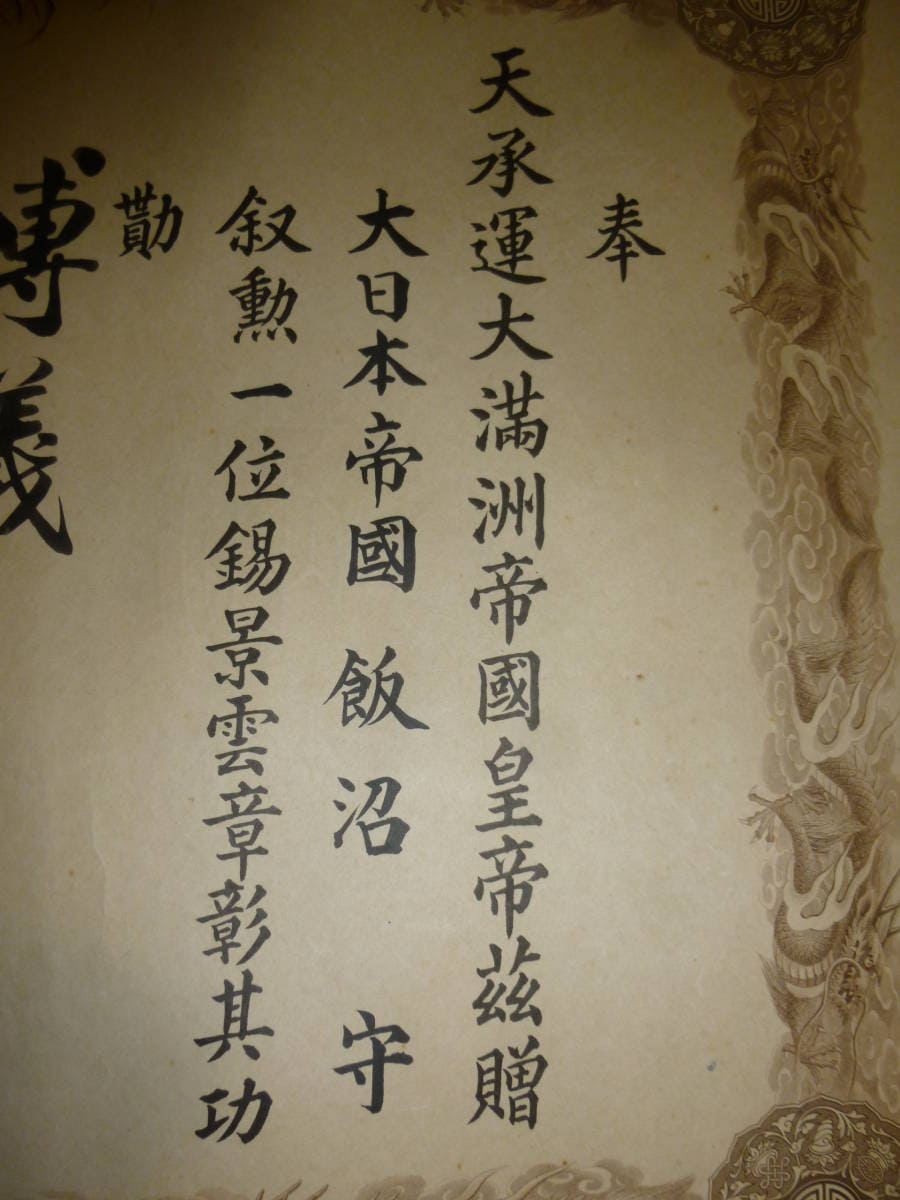 奉
天承運大滿洲帝國皇帝茲贈
大日本帝國飯沼守
叙勳一位錫景雲章彰其功
勩
溥義